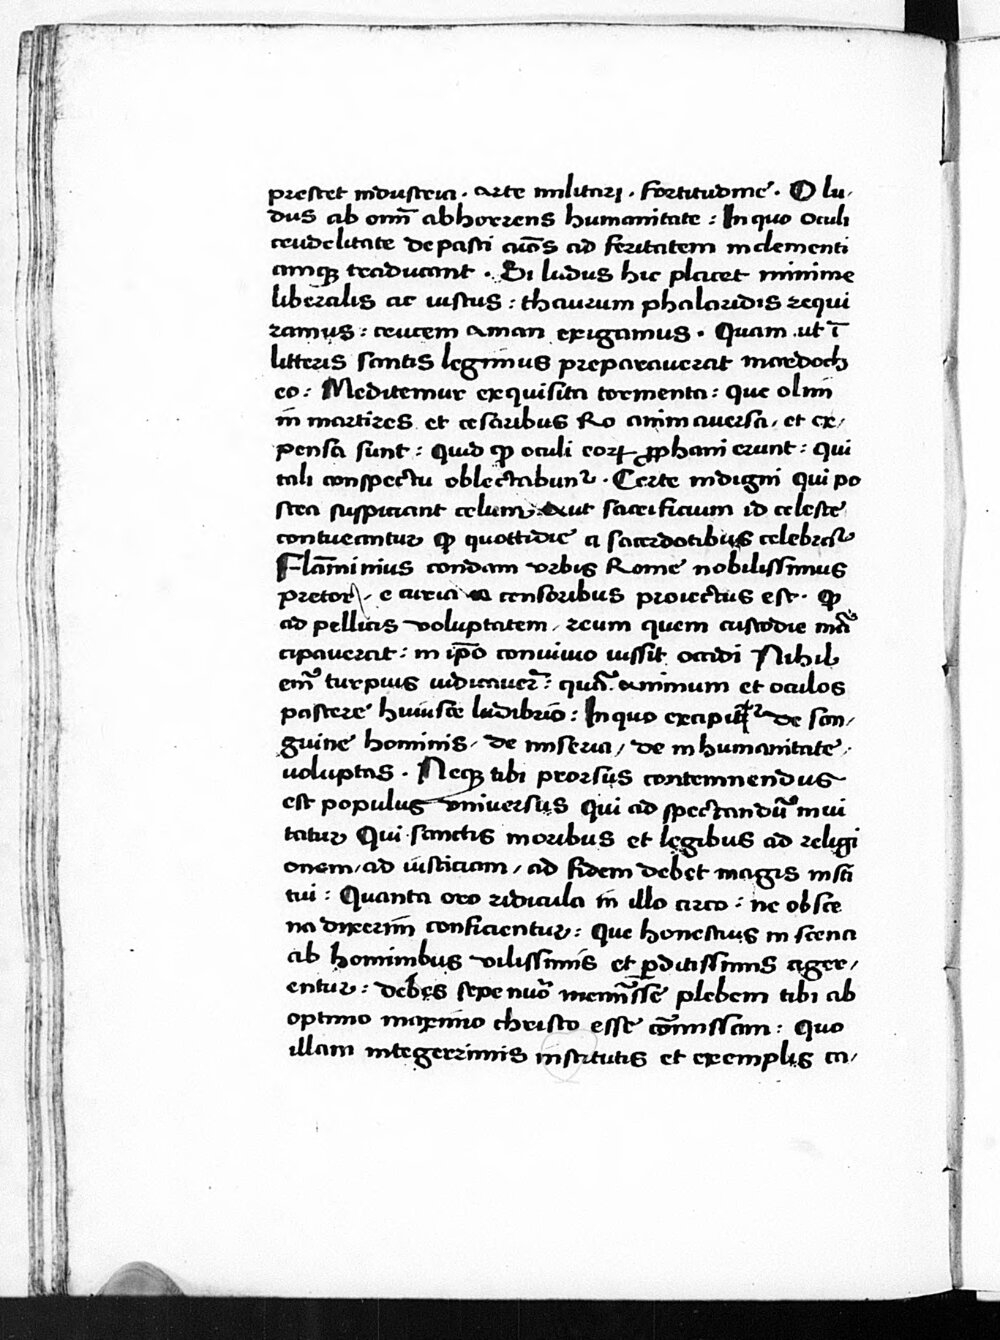 prestet industria . arte militari . fortitudine . O lu,
dus ab om̄i abhorrens humanitate : In quo oculi
crudelitate depasti aīos ad feritatem inclementi
amqꝫ traducant . Si ludus hic placet minime
liberalis ac iustus : thaurum phalaridis requi
ramus : crucem aman exigamus . Quam ut ī
litteris santis legimus preparauerat mardoch
eo : Meditemur exquisita tormenta : Que olim
in martires et cesaribus Ro animauersa , et ex,
pensa sunt : Quid ꝙ oculi eorꝝ ꝓphani erunt : Qui
tali conspectu oblectabunᷣ . Certe indigni qui po
stea suspiciant celum , Aut sacrificium id celeste
contueantur ꝙ quottidie a sacerdotibus celebraᷣ
Flāminius condam vrbis Rome nobilissimus
pretor , e curia a censoribus proiectus est . ꝙ
ad pellicis voluptatem , reum quem custodie mā
cipauerat : in ip̄o conuiuio iussit occidi Nihil
em̄ turpius iudicauer̄ : quā animum et oculos
pascere huiusce ludibrio : In quo excipiᷣ de san,
guine hominis , de miseria , de inhumanitate ,
uoluptas . Neqꝫ tibi prorsus contemnendus
est populus vniuersus Qui ad spectandū inui
tatur Qui sanctis moribus et legibus ad religi
onem , ad iusticiam , ad fidem debet magis insti
tui : Quanta oro ridicula in illo circo : ne obsce
na dixerim conficientur : Que honestius in scena
ab hominibus vilissimis et ꝑditissimis ager,
entur : debes sepenūo memīsse plebem tibi ab
optimo maximo christo esse cōmissam : Quo
illam integerrimis institutis et exemplis ca,